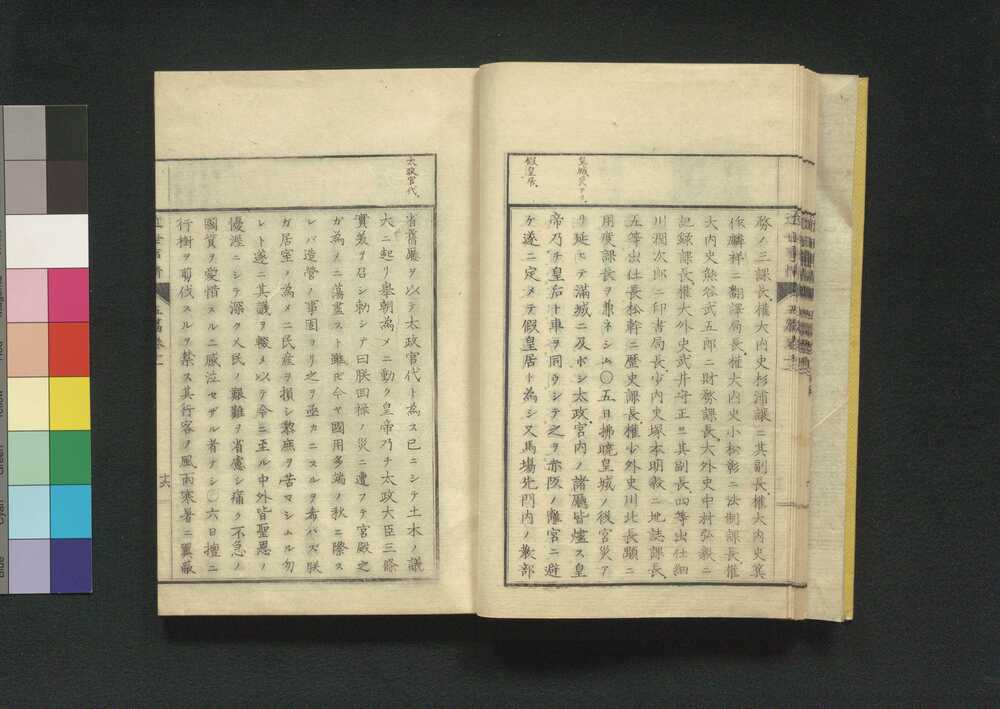 務ノ三課長權大内史杉浦讓ニ其副長權大内史箕
作麟祥ニ翻譯局長權大内史小松彰ニ法制課長權
大内史熊谷武五郎ニ財務課長大外史中村弘毅ニ
記録課長權大外史武井守正ニ其副長四等出仕細
川潤次郎ニ印書局長少内史塚本明毅ニ地誌課長
五等出仕長松幹ニ歴史課長權少外史川北長顒ニ
用度課長ヲ兼ネシム〇五日拂曉皇城ノ後宮災ア
皇城災アリ
リ延ヒテ滿城ニ及ボシ太政宮内ノ諸廳皆燼ス皇
帝乃チ皇后ト車ヲ同ウシテ之ヲ赤阪ノ離宮ニ避
假皇居
ケ遂ニ定メテ假皇居ト為シ又馬場先門内ノ教部
太政官代
省舊廳ヲ以テ太政官代ト為ス已ニシテ土木ノ議
大ニ起リ舉朝為メニ動ク皇帝乃チ太政大臣三條
實美ヲ召シ勅シテ曰朕回祿ノ災ニ遭フテ宮殿之
ガ為メニ蕩盡スト雖𪜈今ヤ國用多端ノ秋ニ際ス
レバ造營ノ事固ヨリ之ヲ亟カニスルヲ希ハズ朕
ガ居室ノ為メニ民産ヲ損シ黎庶ヲ苦マシムル勿
レト遂ニ其議ヲ輟メ以テ今ニ至ル中外皆聖恩ノ
優渥ニシテ深ク人民ノ艱難ヲ省慮シ痛ク不急ノ
國貲ヲ愛惜スルニ感泣セザル者ナシ〇六日擅ニ
行樹ヲ剪伐スルヲ禁ス其行客ノ風雨寒暑ニ翼蔽
十六